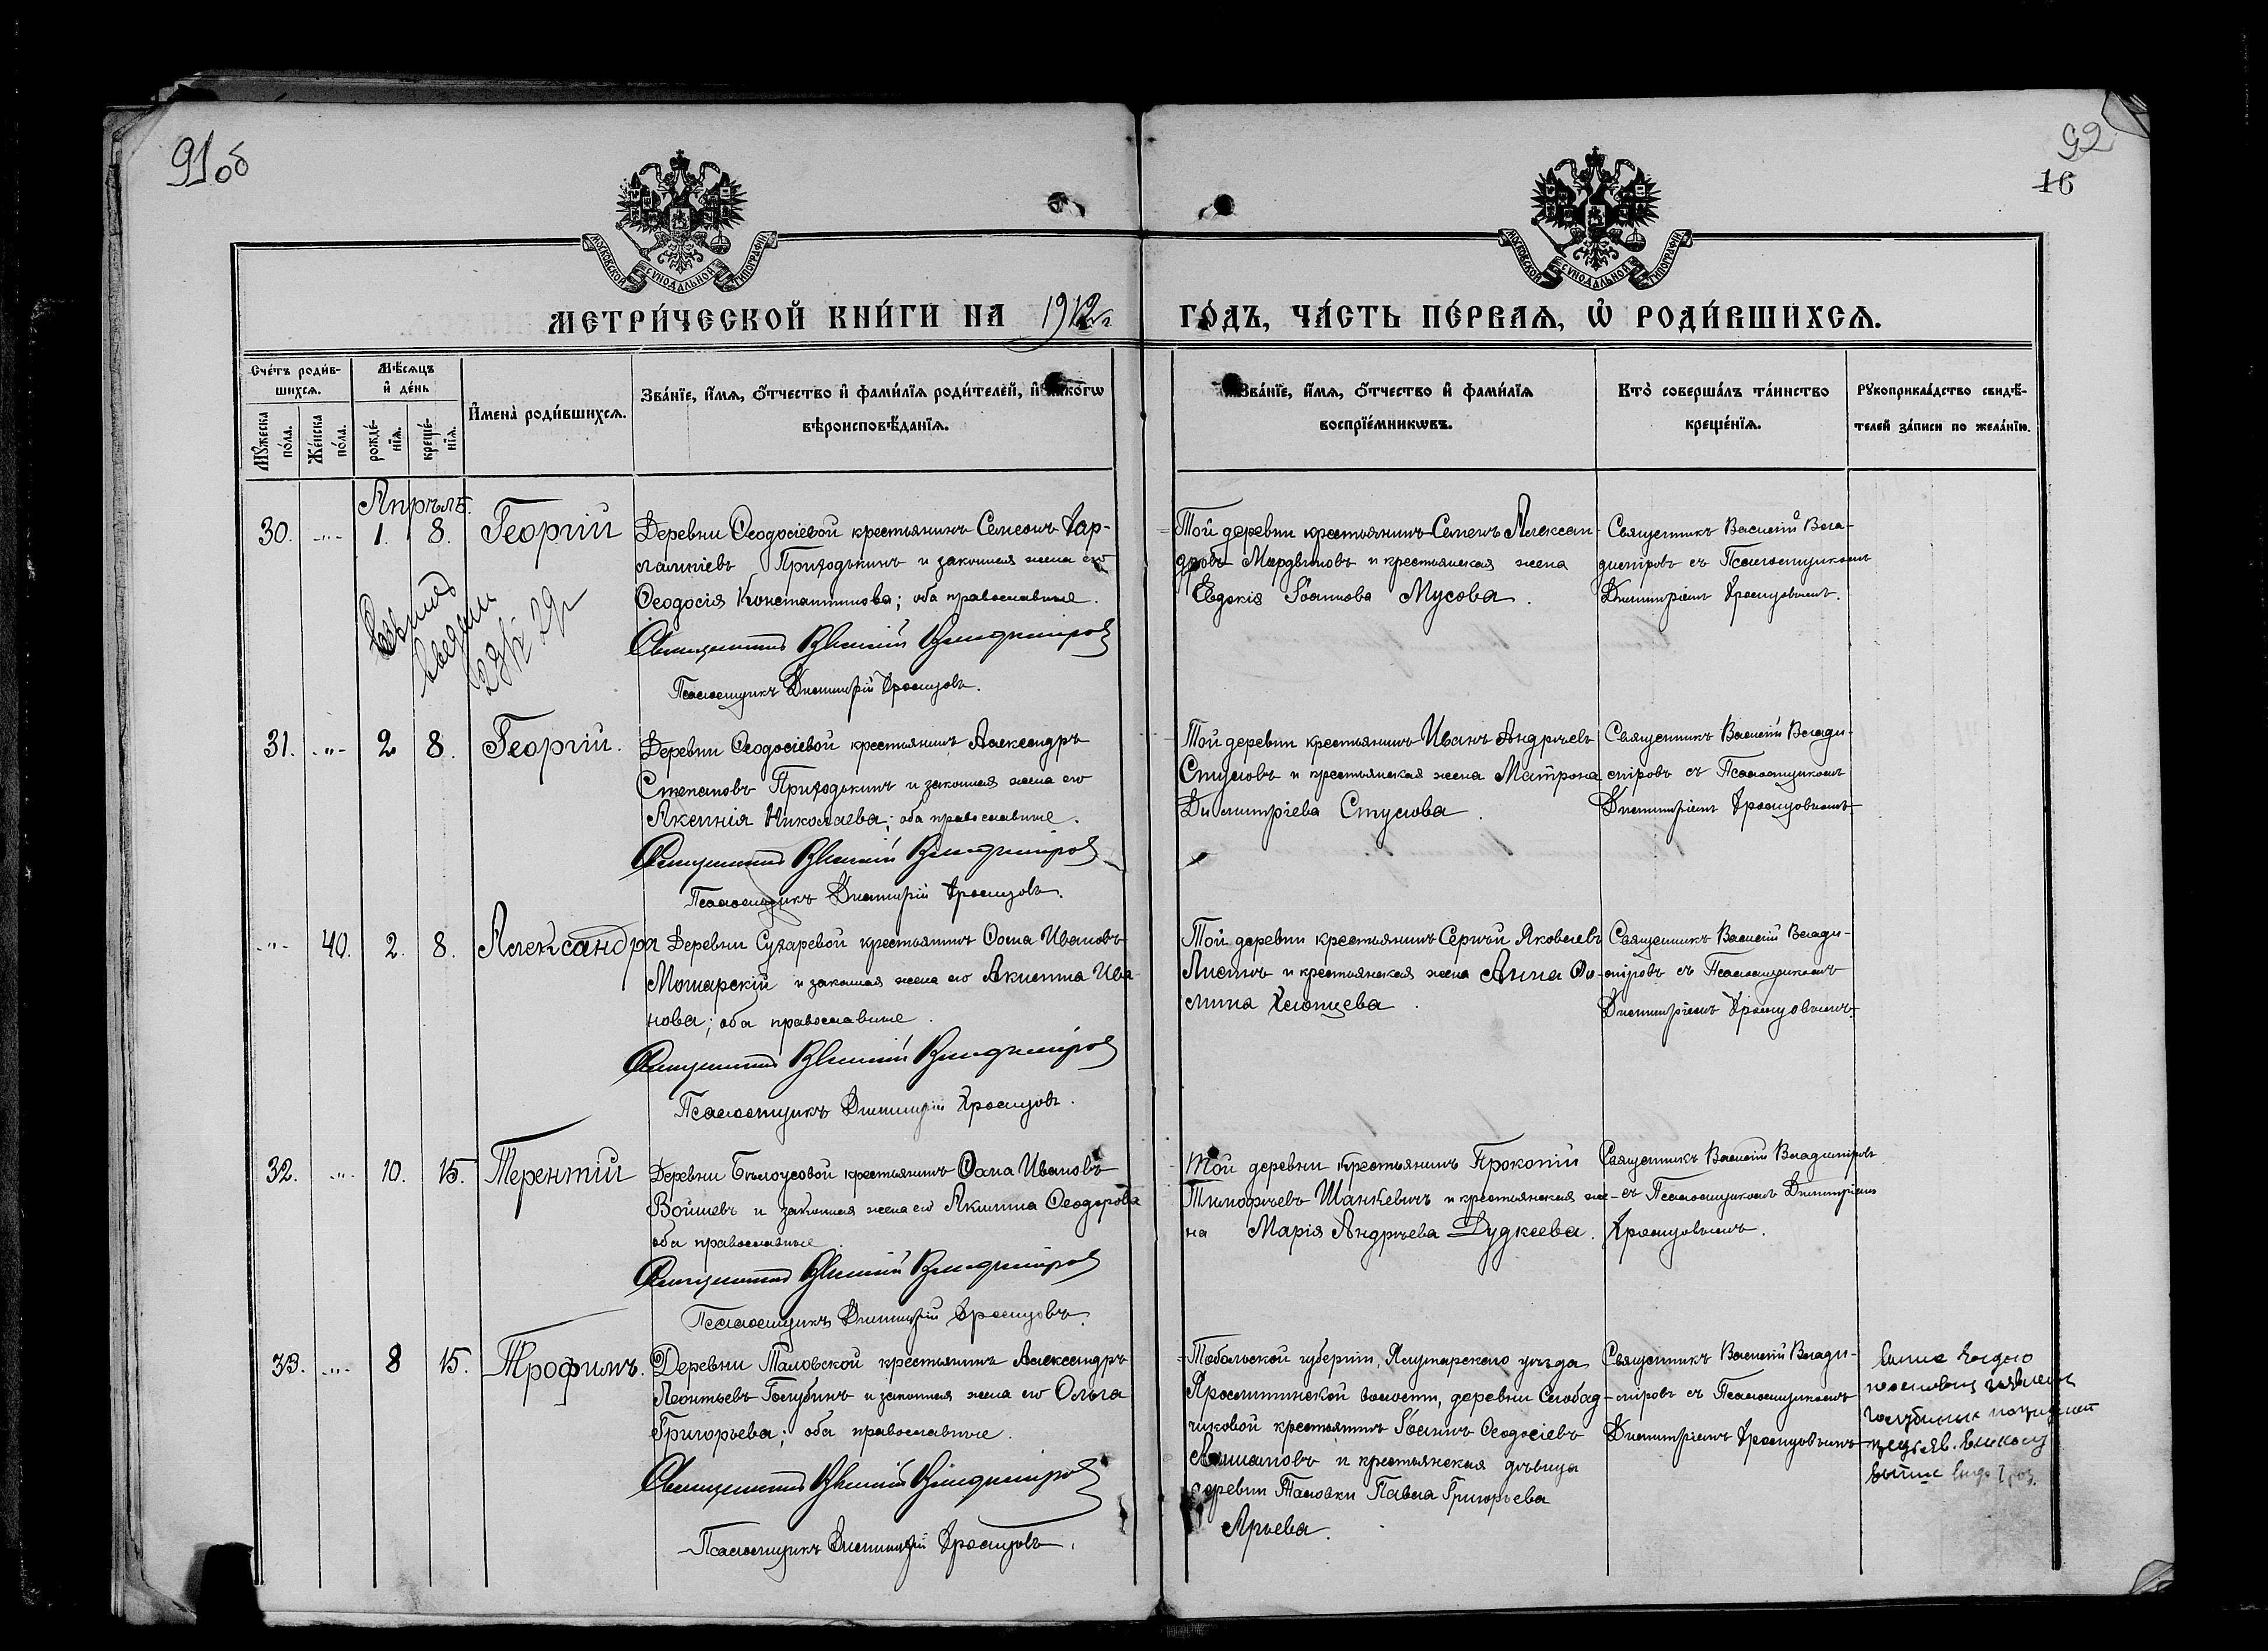 91об
92
16
МОСКОВСКОЙ СѴНОДАЛЬНОЙ ТИПОГРАФІИ
МОСКОВСКОЙ СѴНОДАЛЬНОЙ ТИПОГРАФІИ
МЕТРИ́ЧЕСКОЙ КНИ́ГИ НА 1912г
ГО́ДЪ, ЧА́СТЬ ПЕ́РВАЯ, Ѡ҆ РОДИ́ВШИХСЯ.
Сче́тъ роди́в-
шихся.
Му́жеска
по́ла.
Же́нска
по́ла.
Мѣ́сяцъ
и҆ де́нь
рожде́-
нія.
креще́-
нія.
И҆мена̀ роди́вшихся.
Зва́нїе, и҆́мя, ѻ҆́тчество и҆ фами́лїя роди́телей, и҆ како́гѡ
вѣроисповѣ́данїя.
Зва́нїе, и҆́мя, ѻ҆́тчество и҆ фами́лїя
воспрїе́мникѡвъ.
Кто̀ соверша́лъ та́инство
креще́нїя.
Рукоприкла́дство свидѣ́-
телей за́писи по жела́нїю.
Апрѣль.
30. -"- 1. 8. Георгій
Деревни Ѳеодосіевой крестьянинъ Симеонъ Хар-
лампіевъ Приходькинъ и законная жена его
Ѳеодосія Константинова; оба православные.
Священникъ Василій Владиміровъ
Псаломщикъ Димитрій Храмцовъ.
Той деревни крестьянинъ Семенъ Алексан-
дровъ Мордвиновъ и крестьянская жена
Евдокія Іоаннова Мусова.
Священникъ Василій Вла-
диміровъ съ Псаломщикомъ
Димитріемъ Храмцовымъ.
31. -"- 2 8. Георгій.
Деревни Ѳеодосіевой крестьянинъ Александръ
Степановъ Приходькинъ и законная жена его
Аксинія Николаева; оба православные.
Священникъ Василій Владиміровъ
Псаломщикъ Димитрій Храмцовъ.
Той деревни крестьянинъ Иванъ Андреевъ
Стусовъ и крестьянская жена Матрона
Димитріева Стусова.
Священникъ Василій Влади-
міровъ съ Псаломщикомъ
Димитріемъ Храмцовымъ
-"- 40. 2. 8. Александра
Деревни Сухаревой крестьянинъ Ѳома Ивановъ
Мошарскій и законная жена его Акилина Ива-
нова; оба православные.
Священникъ Василій Владиміровъ
Псаломщикъ Димитрій Храмцовъ.
Той деревни крестьянинъ Сергій Яковлевъ
Лисинъ и крестьянская жена Анна Ѳо-
мина Хлопцева.
Священникъ Василій Влади-
міровъ съ Псаломщикомъ
Димитріемъ Храмцовымъ.
32. -"- 10. 15. Терентій
Деревни Бѣлоусовой крестьянинъ Ѳома Ивановъ
Войшевъ и законная жена его Акилина Ѳеодорова
оба православные.
Священникъ Василій Владиміровъ
Псаломщикъ Димитрій Храмцовъ.
Той деревни крестьянинъ Прокопій
Тимофеевъ Шанкевичъ и крестьянская же-
на Марія Андреева Дудкеева.
Священникъ Василій Владиміровъ
съ Псаломщикомъ Димитріемъ
Храмцовымъ.
33. -"- 8 15. Трофимъ.
Деревни Таловской крестьянинъ Александръ
Леонтьевъ Голубинъ и законная жена его Ольга
Григорьева; оба православные.
Священникъ Василій Владиміровъ
Псаломщикъ Димитрій Храмцовъ.
Тобольской губерніи, Ялуторскаго уѣзда
волости, деревни Слобад-
чиковой крестьянинъ Іоаннъ Ѳеодосіевъ
и крестьянская дѣвица
деревни Таловки Павла Григорьева
Арьева.
Священникъ Василій Влади-
міровъ съ Псаломщикомъ
Димитріемъ Храмцовымъ